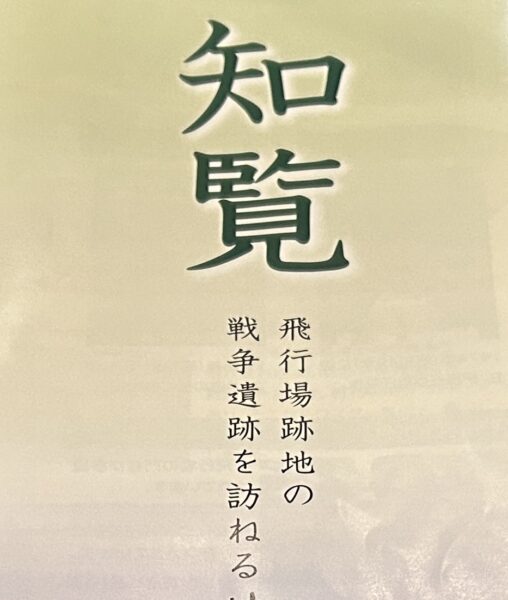 知覧
飛行場跡地の
戦争遺跡を訪ねる